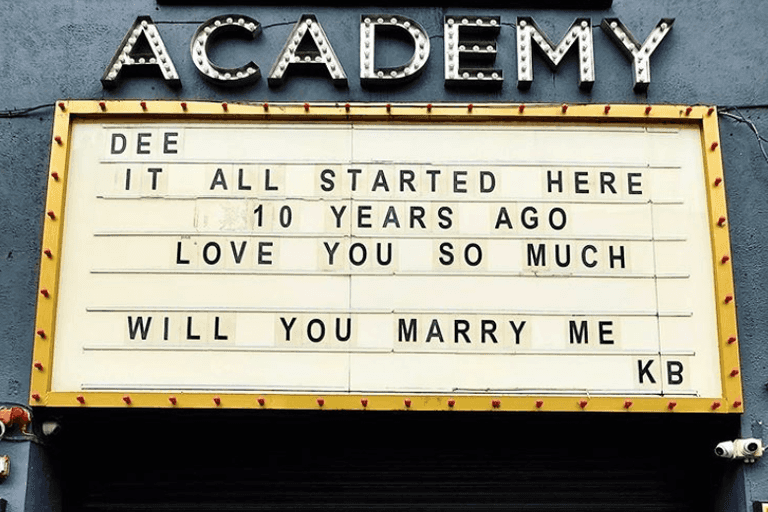 ACADEMY
DEE
IT ALL STARTED HERE
10 YEARS AGO
LOVE YOU SO MUCH
WILL YOU MARRY ME
KB